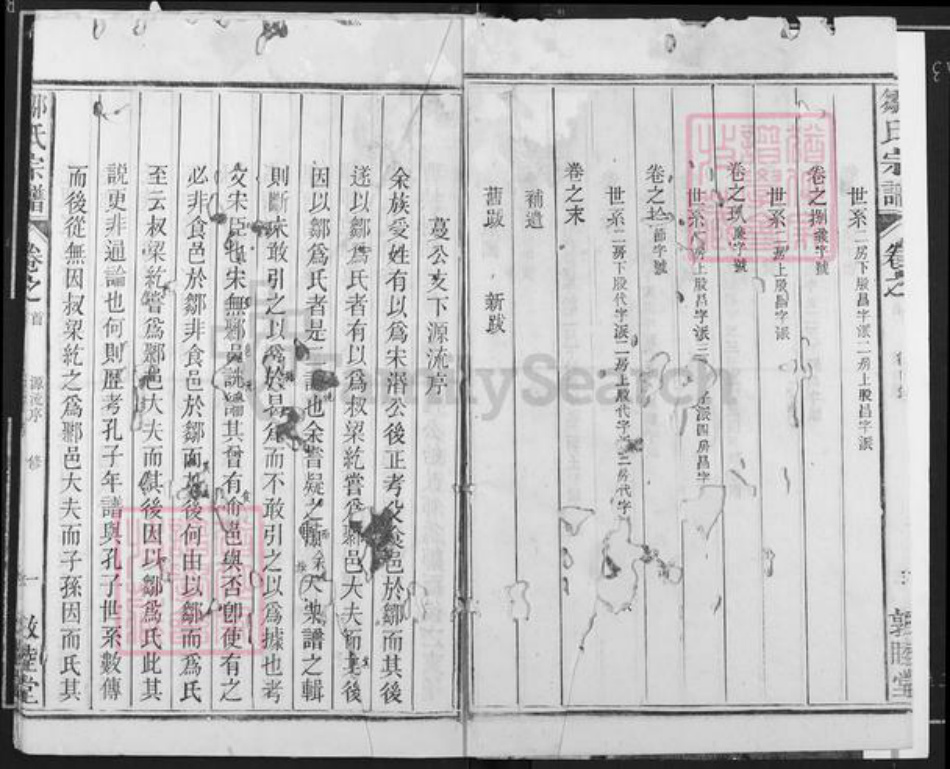 鄒氏宗譜
卷之
敦睦堂
世系二房下股昌字派二房上股昌字派
卷之捌
世系二房上股昌字派
卷之玖
世系 房上股昌字派三 字派四房昌字
卷之拾 節字號
世系二房下股代字派二房上股代字 三房代字
卷之末
補遺
舊跋 新跋
蔓公支下源流序
余族受姓有以為宋湣公後正考父食邑於鄒而其後
遂以鄒為氏者有以為叔梁紇嘗為鄹邑大夫而其後
因以鄒為氏者是二說也余嘗疑之 天柴譜之輯
則斷未敢引之以為 而不敢引之以為據也考
父宋臣也宋無鄹邑 論其曾有俞邑與否卽使有之
必非食邑於鄒非食邑於鄒而 後何由以鄒而為氏
至云叔梁紇嘗為鄹邑大夫而其後因以鄒為氏此其
說更非通論也何則歷考孔子年譜與孔子世系數傳
而後從無因叔梁紇之為鄹邑大夫而子孫因而氏其
氏宗譜
卷之首
源流序
修
一
敦睦堂
FamilySearch